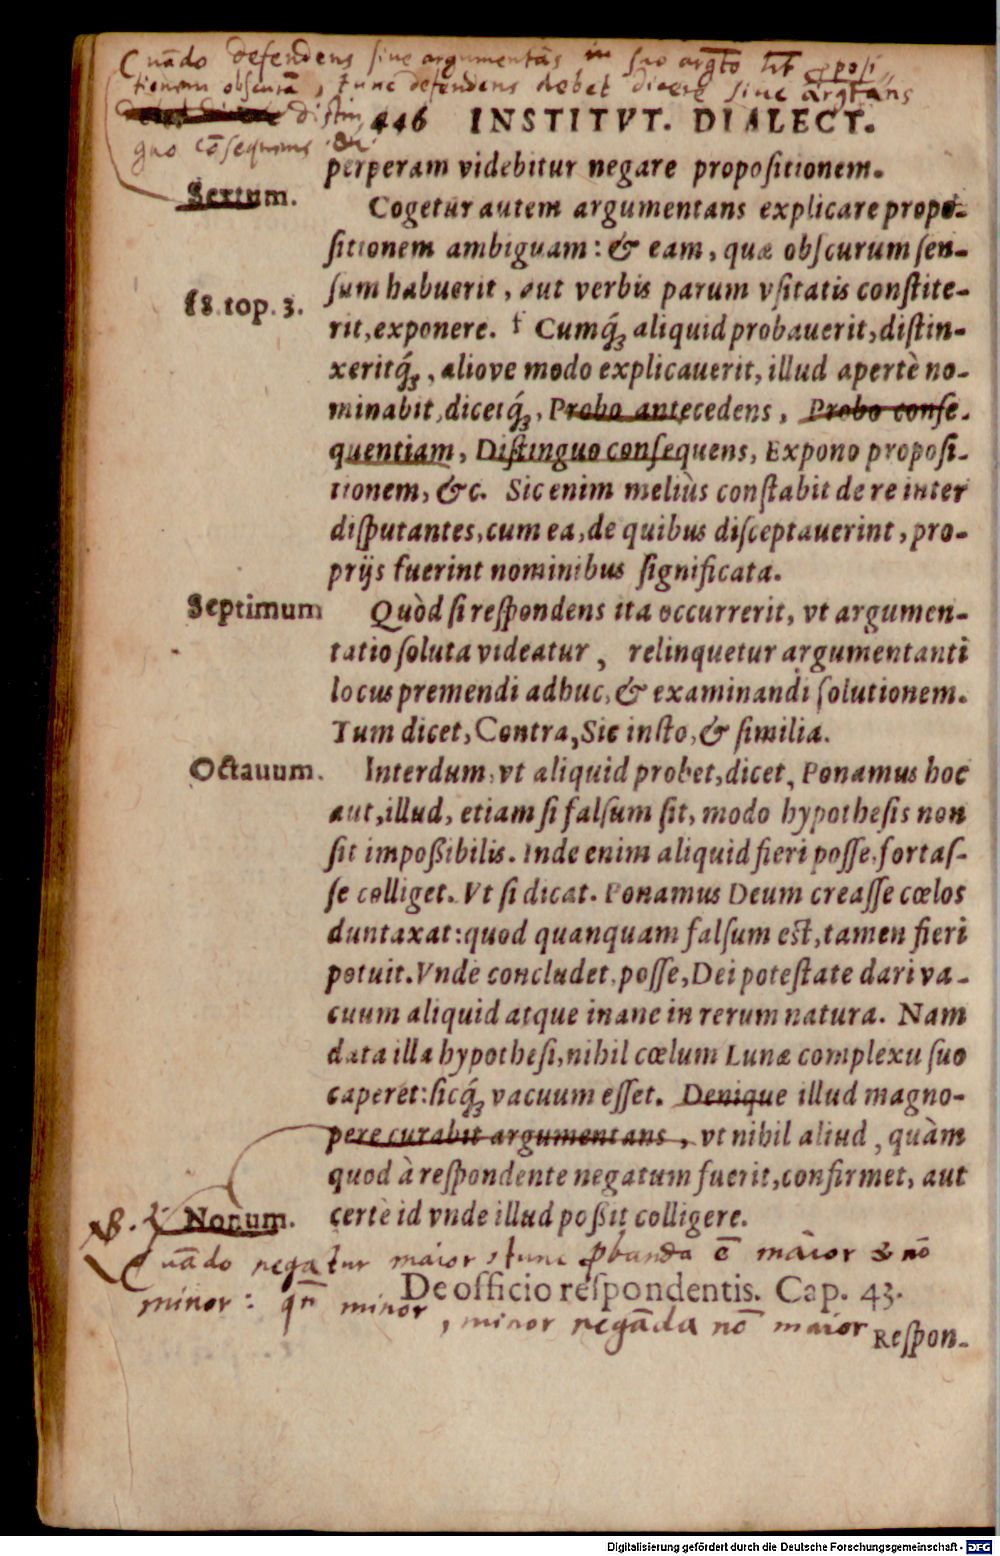 Cuãdo defendens siue argumentãs in suo argto hēt proposi
tionem obscurã, tunc defendens debet dicere siue argtans
distin
guo cõsequens &c
446 INSTITVT. DIALECT.
perperam videbitur negare propoſitionem.
Sextum.
Cogetur autem argumentans explicare propo-
ſitionem ambiguam: & eam, quæ obſcurum ſen-
ſum habuerit, aut verbis parum vſitatis conſtite-
f8.top.3.
rit, exponere. f Cumq́; aliquid probauerit, diſtin-
xeritq́;, aliove modo explicauerit, illud apertè no-
minabit, dicetq́;, Probo antecedens, Probo conſe-
quentiam, Diſtinguo conſequens, Expono propoſi-
tionem, &c. Sic enim meliùs conſtabit de re inter
diſputantes, cum ea, de quibus diſceptauerint, pro-
prijs fuerint nominibus ſignificata.
Septimum
Quòd ſi reſpondens ita occurrerit, vt argumen-
tatio ſoluta videatur, relinquetur argumentanti
locus premendi adhuc, & examinandi ſolutionem.
Tum dicet, Contra, Sic inſto, & ſimilia.
Octauum.
Interdum, vt aliquid probet, dicet, Ponamus hoc
aut, illud, etiam ſi falſum ſit, modo hypotheſis non
ſit impoßibilis. Inde enim aliquid fieri poſſe, fortaſ-
ſe colliget. Vt ſi dicat. Ponamus Deum creaſſe cœlos
duntaxat: quod quanquam falſum eſt, tamen fieri
potuit. Vnde concludet, poſſe, Dei poteſtate dari va-
cuum aliquid atque inane in rerum natura. Nam
data illa hypotheſi, nihil cœlum Lunæ complexu ſuo
caperet: ſicq́; vacuum eſſet. Denique illud magno-
pere curabit argumentans, vt nihil aliud, quàm
quod à reſpondente negatum fuerit, confirmet, aut
Nonum.
certè id vnde illud poßit colligere.
Cuãdo negatur maior, tunc ꝓbanda ē maior & nõ
De officio reſpondentis. Cap. 43.
minor: qñ minor, minor negãda nõ maior
Reſpon-
Digitalisierung gefördert durch die Deutsche Forschungsgemeinschaft - DFG